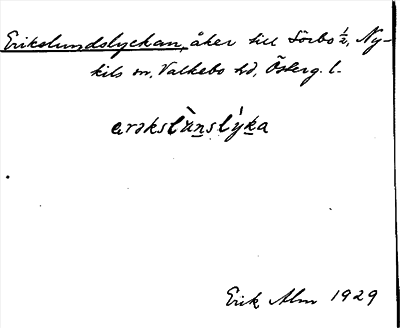 Erikslundslyckan, åker till Sörbo ½, Ny-
kils sn, Valkebo hd, Österg. l.
erəkslùnslýka
Erik Alm 1929